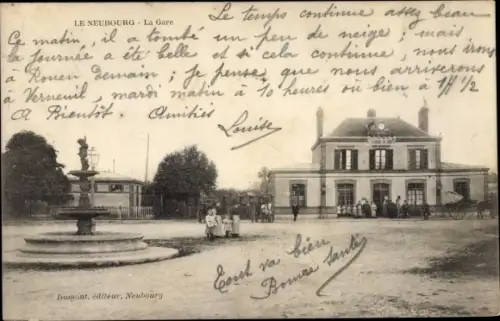 LE NEUBOURG - La Gare
Le temps continue assez beau
Ce matin, il a tombé un peu de neige; mais
la journée a été belle et si cela continue, nous irons
à Rouen demain; je pense que nous arriverons
à Verneuil, mardi matin à 10 heures ou bien à 1h 1/2
A Bientôt. Amitiés
Louise
Tout va bien
Bonne Santé
Dumont, éditeur, Neubourg